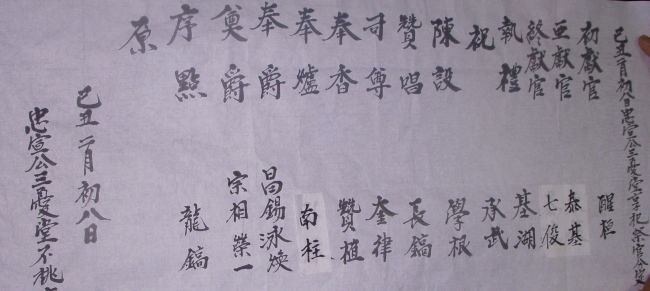 己丑二月初八日忠宣公三憂堂享祀祭官分定
初獻官
亞獻官 泰基
終獻官 七俊
執禮 基湖
祝 承武
陳設 學根
讚唱 長鎬
司尊 奎律
奉香 讚植
奉爐 南柱
奉爵 昌錫 泳煥
奠爵 宗相 榮一
序點 龍鎬
原
己丑二月初八日
忠宣公三憂堂不祧